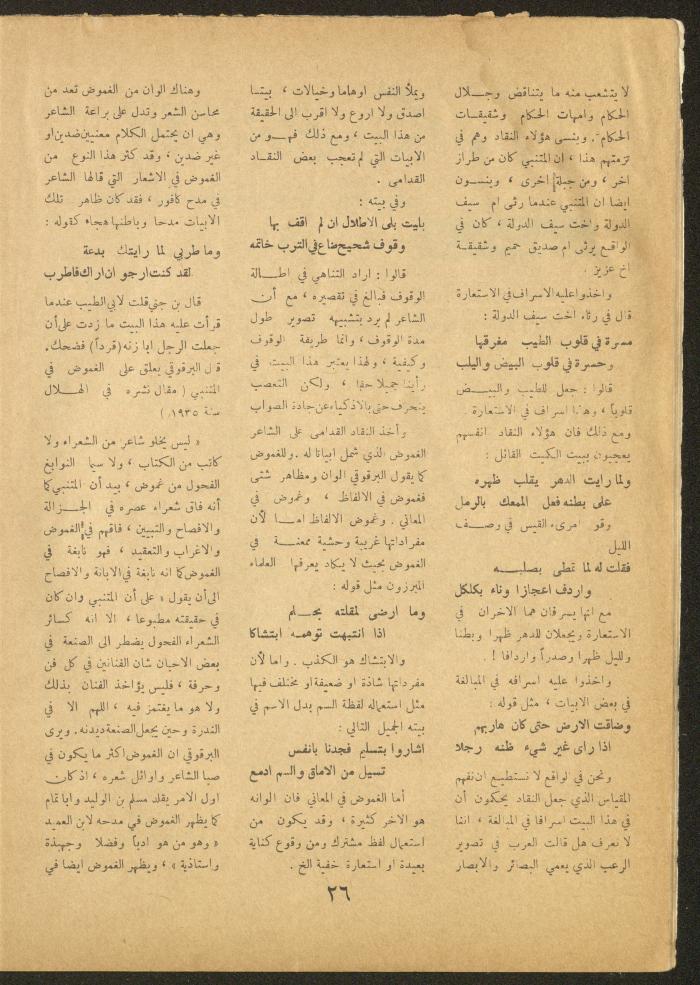 لا يتشعب منه ما يتناقض وجـــلال
الحكام وامهات الحكام وشقيقـــات
الحكام . وينسى هؤلاء النقاد وهم في
تزمتهم هذا ، ان المتنبي كان من طراز
اخر ، ومن جبلة اخرى ، وينســون
ايضا ان المتنبي عندما رثى ام سيف
الدولة واخت سيف الدولة ، كان في
الواقع يرثى ام صديق حميم وشقيقة
اخ عزيز .
واخذوا عليه الاسراف في الاستعارة
قال في رثاء اخت سيف الدولة :
مسرة في قلوب الطيب مفرقها
وحسرة في قلوب البيض واليلب
قالوا : جعل للطيب والبيــض
قلوباً ، وهذا اسراف في الاستعارة .
ومع ذلك فان هؤلاء النقاد انفسهم
يعجبون ببيت الكميت القائل :
ولما رايت الدهر يقلب ظهره
على بطنه فعل الممعك بالرمل
وقو امرىء القيس في وصــف
الليل
فقلت له لما تمطى بصلبــــه
واردف اعجازا وناء بكلكل
مع انها يسرقان هما الاخران في
الاستعارة ويجعلان للدهر ظهرا وبطنا
ولليل ظهرا وصدراً واردافا !
واخذوا عليه اسرافه في المبالغة
في بعض الابيات ، مثل قوله :
وضاقت الارض حتى كان هاربهم
اذا راى غير شيء ظنه رجلا
ونحن في الواقع لا نستطيع ان نفهم
المقياس الذي جعل النقاد يحكمون أن
في هذا البيت اسرافا في المبالغة ، اننا
لا نعرف هل قالت العرب في تصوير
الرعب الذي يعمي البصائر والابصار
ويملأ النفس اوهاما وخيالات ، بيتا
اصدق ولا اروع ولا اقرب الى الحقيقة
من هذا البيت ، ومع ذلك فهــو من
الابيات التي لم تعجب بعض النقــاد
القدامى .
وفي بيته :
بليت بلى الاطلال ان لم اقف بها
وقوف شحيح ضاع في الترب خاتمه
قالوا : اراد التناهي في اطــالة
الوقوف فبالغ في تقصيره ، مع أن
الشاعر لم يرد بتشبيهه تصوير طول
مدة الوقوف ، وانما طريقة الوقوف
وكيفية ، ولهذا يعتبر هذا البيت في
رأينا جميلا حقا ، ولكن التعصب
ينحرف حتى بالاذكياء عن جادة الصواب
وأخذ النقاد القدامى على الشاعر
الغموض الذي شمل ابياتا له . وللغموض
كما يقول البرقوقي الوان ومظاهر شتى
فغموض في الالفاظ ، وغموض في
المعاني . وغموض الالفاظ امــا لأن
مفرداتها غريبة وحشية ممعنــة في
الغموض بحيث لا يكاد يعرفها العلماء
المبرزون مثل قوله :
وما ارضى لمقلته بحـــلم
اذا انتبهت توهمـه ابتشاكا
والابتشاك هو الكذب . واما لأن
مفرداتها شاذة او ضعيفة او مختلف فيها
مثل استعماله لفظة السم بدل الاسم في
بيته الجميل التالي :
اشاروا بتسليم فجدنا بانفس
تسيل من الاماق والسم ادمع
أما الغموض في المعاني فان الوانه
هو الاخر كثيرة ، وقد يكون من
استعمال لفظ مشترك ومن وقوع كناية
بعيدة او استعارة خفية الخ .
وهناك الوان من الغموض تعد من
محاسن الشعر وتدل على براعة الشاعر
وهي ان يحتمل الكلام معنيين ضدين او
غير ضدين ، وقد كثر هذا النوع من
الغموض في الاشعار التي قالها الشاعر
في مدح كافور ، فقد كان ظاهر تلك
الابيات مدحا وباطنها هجاء كقوله :
وما طربي لما رايتك بدعة
لقد كنت ارجو ان اراك فاطرب
قال بن جني قلت لابي الطيب عندما
قرأت عليه هذا البيت ما زدت على أن
جعلت الرجل ابا زنه ( قرداً ) فضحك .
قال البرقوقي يعلق على الغموض في
المتنبي ( مقال نشره في الهــلال
سنة ١٩٣٥ )
« ليس يخلو شاعر من الشعراء ولا
كاتب من الكتاب ، ولا سيما النوابغ
الفحول من غموض ، بيد أن المتنبي كما
أنه فاق شعراء عصره في الجـــزالة
والافصاح والتبيين ، فاقهم في الغموض
والاغراب والتعقيد ، فهو نابغة في
الغموض كما انه نابغة في الابانة والافصاح
الى أن يقول « على أن المتنبي وان كان
في حقيقته مطبوعا ، الا انه كسائر
الشعراء الفحول يضطر الى الصنعة في
بعض الاحيان شان الفنانين في كل فن
وحرفة ، فليس يؤاخذ الفنان بذلك
ولا هو ما يغتمز فيه ، اللهم الا في
الندرة وحين يجعل الصنعة ديدنه . ويرى
البرقوقي ان الغموض اكثر ما يكون في
صبا الشاعر واوائل شعره ، اذ كان
اول الامر يقلد مسلم بن الوليد وابا تمام
كما يظهر الغموض في مدحه لابن العميد
« وهو من هو ادباً وفضلا وجهبذة
واستاذية » ، ويظهر الغموض ايضا في
٢٦